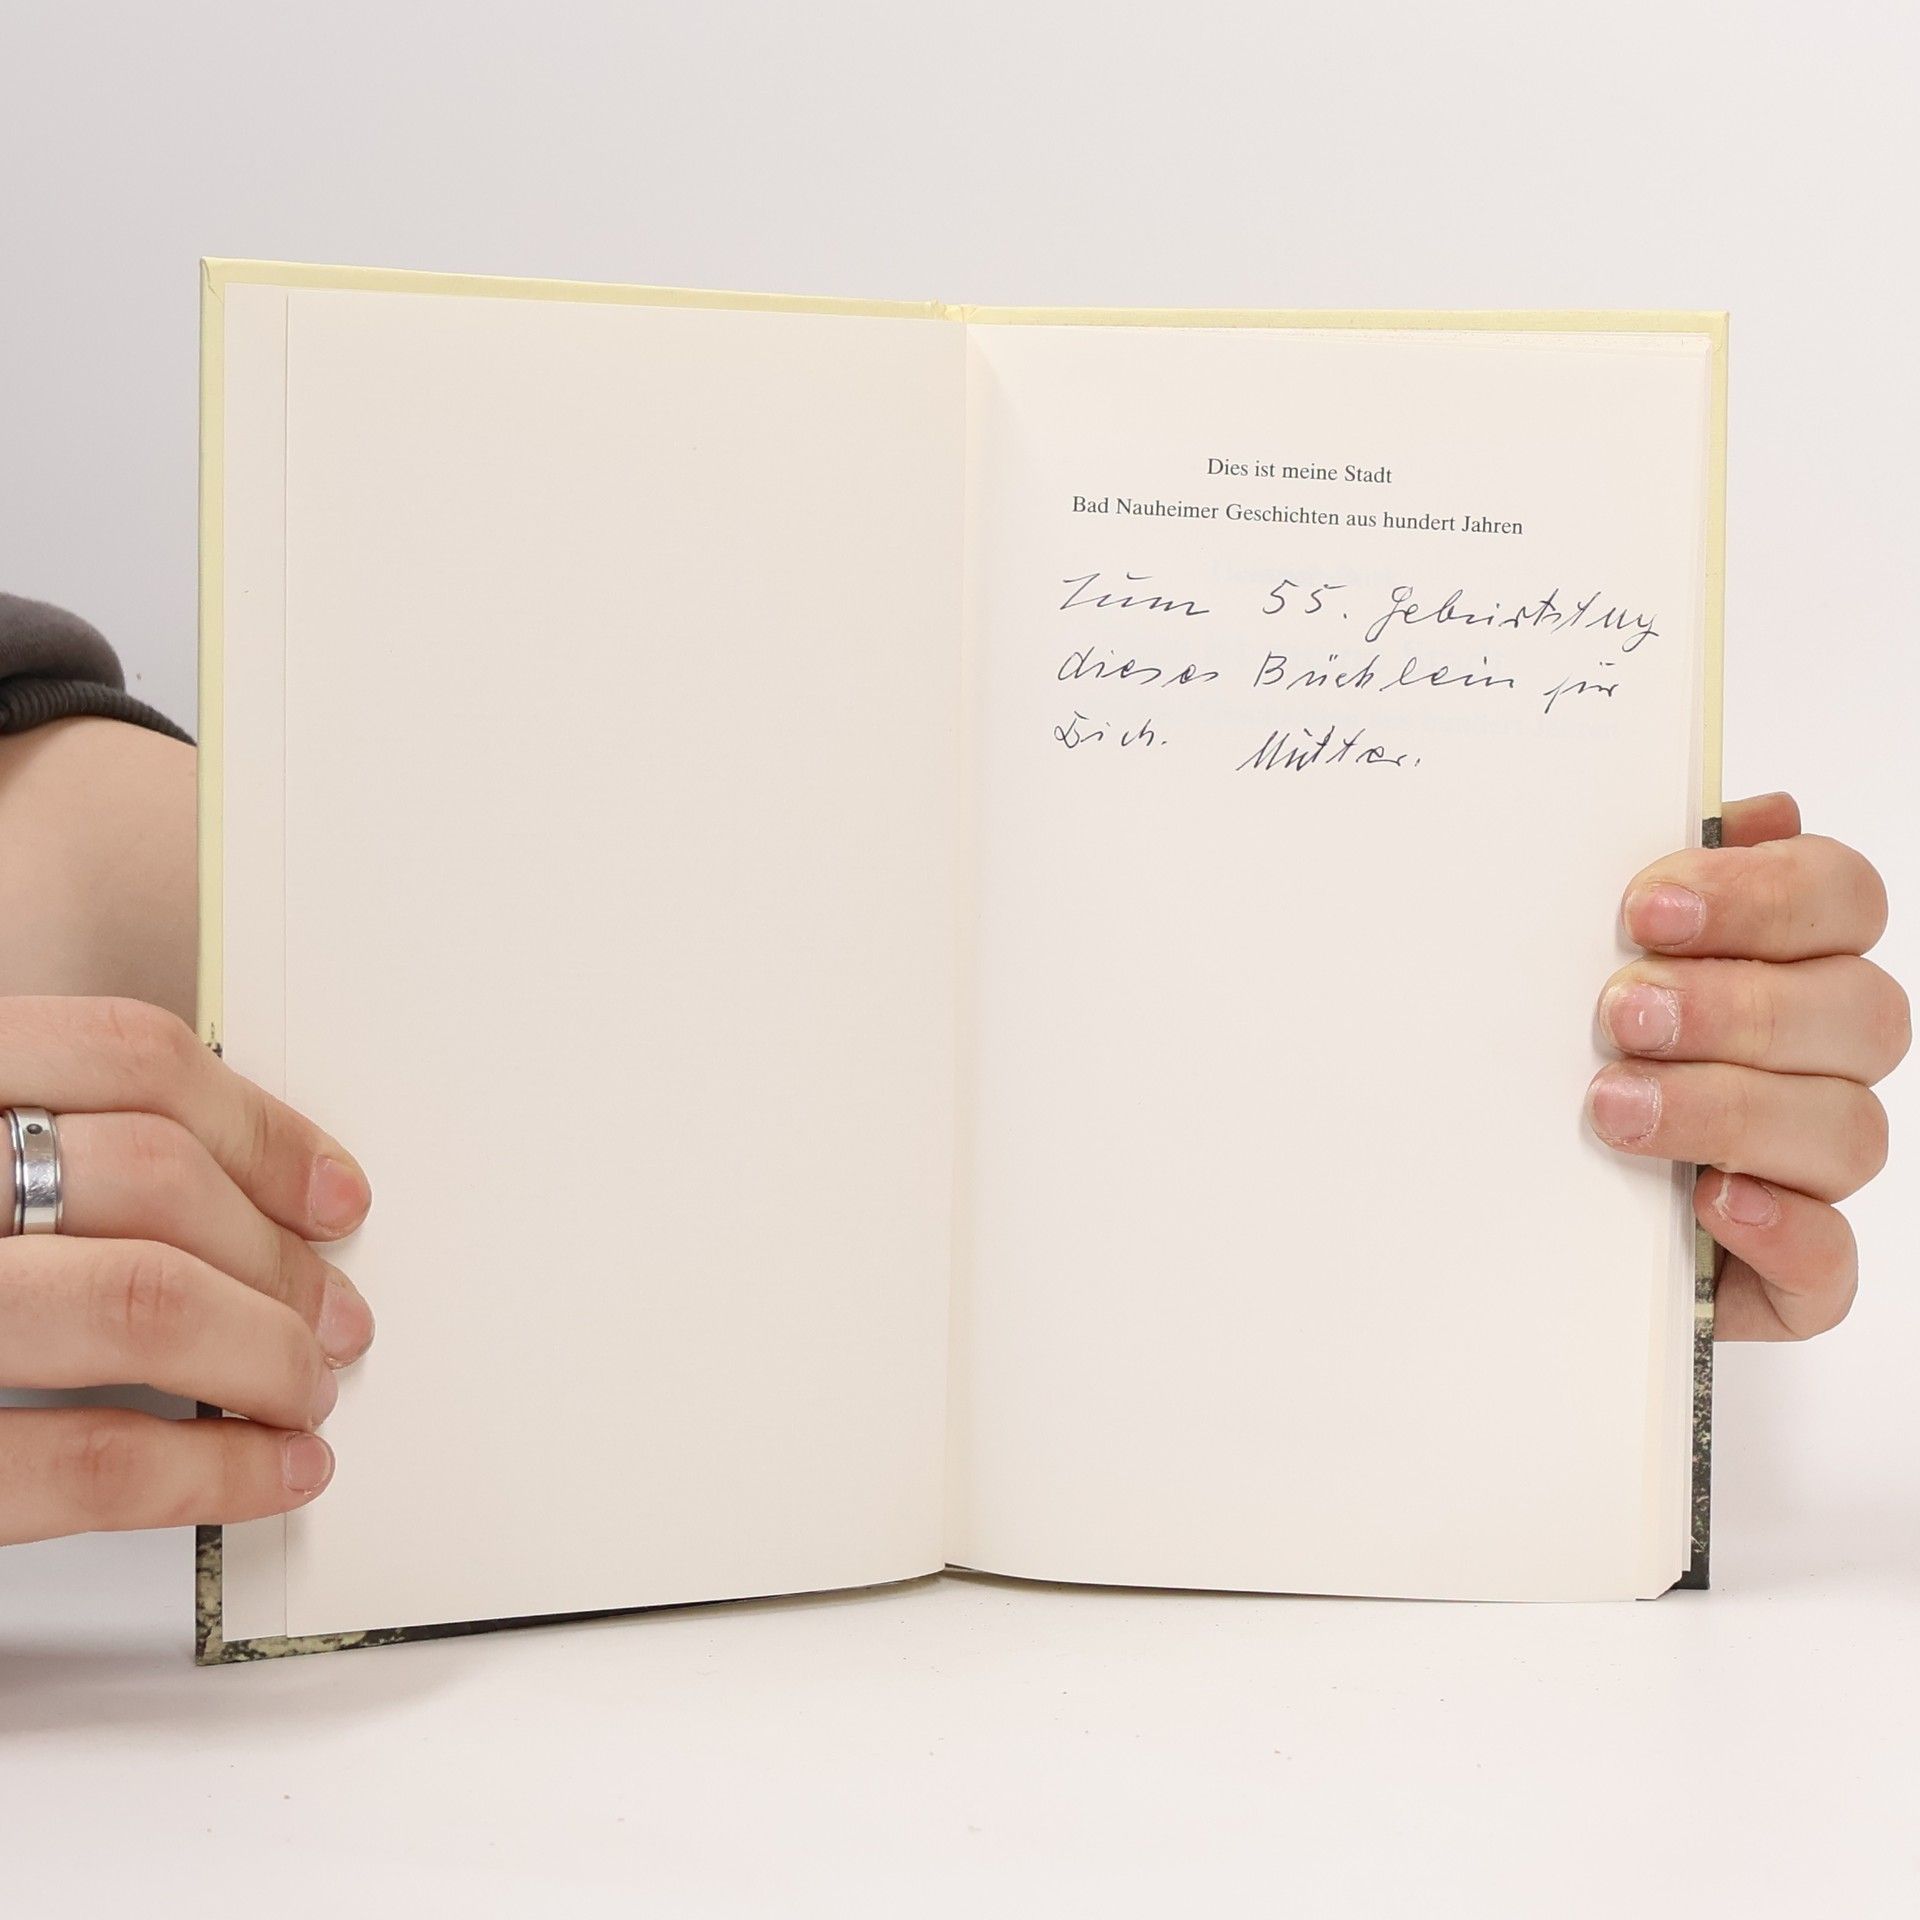 Dies ist meine Stadt
Bad Nauheimer Geschichten aus hundert Jahren
Zum 55. Geburtstag
dieses Büchlein für
Dich. Mutter.